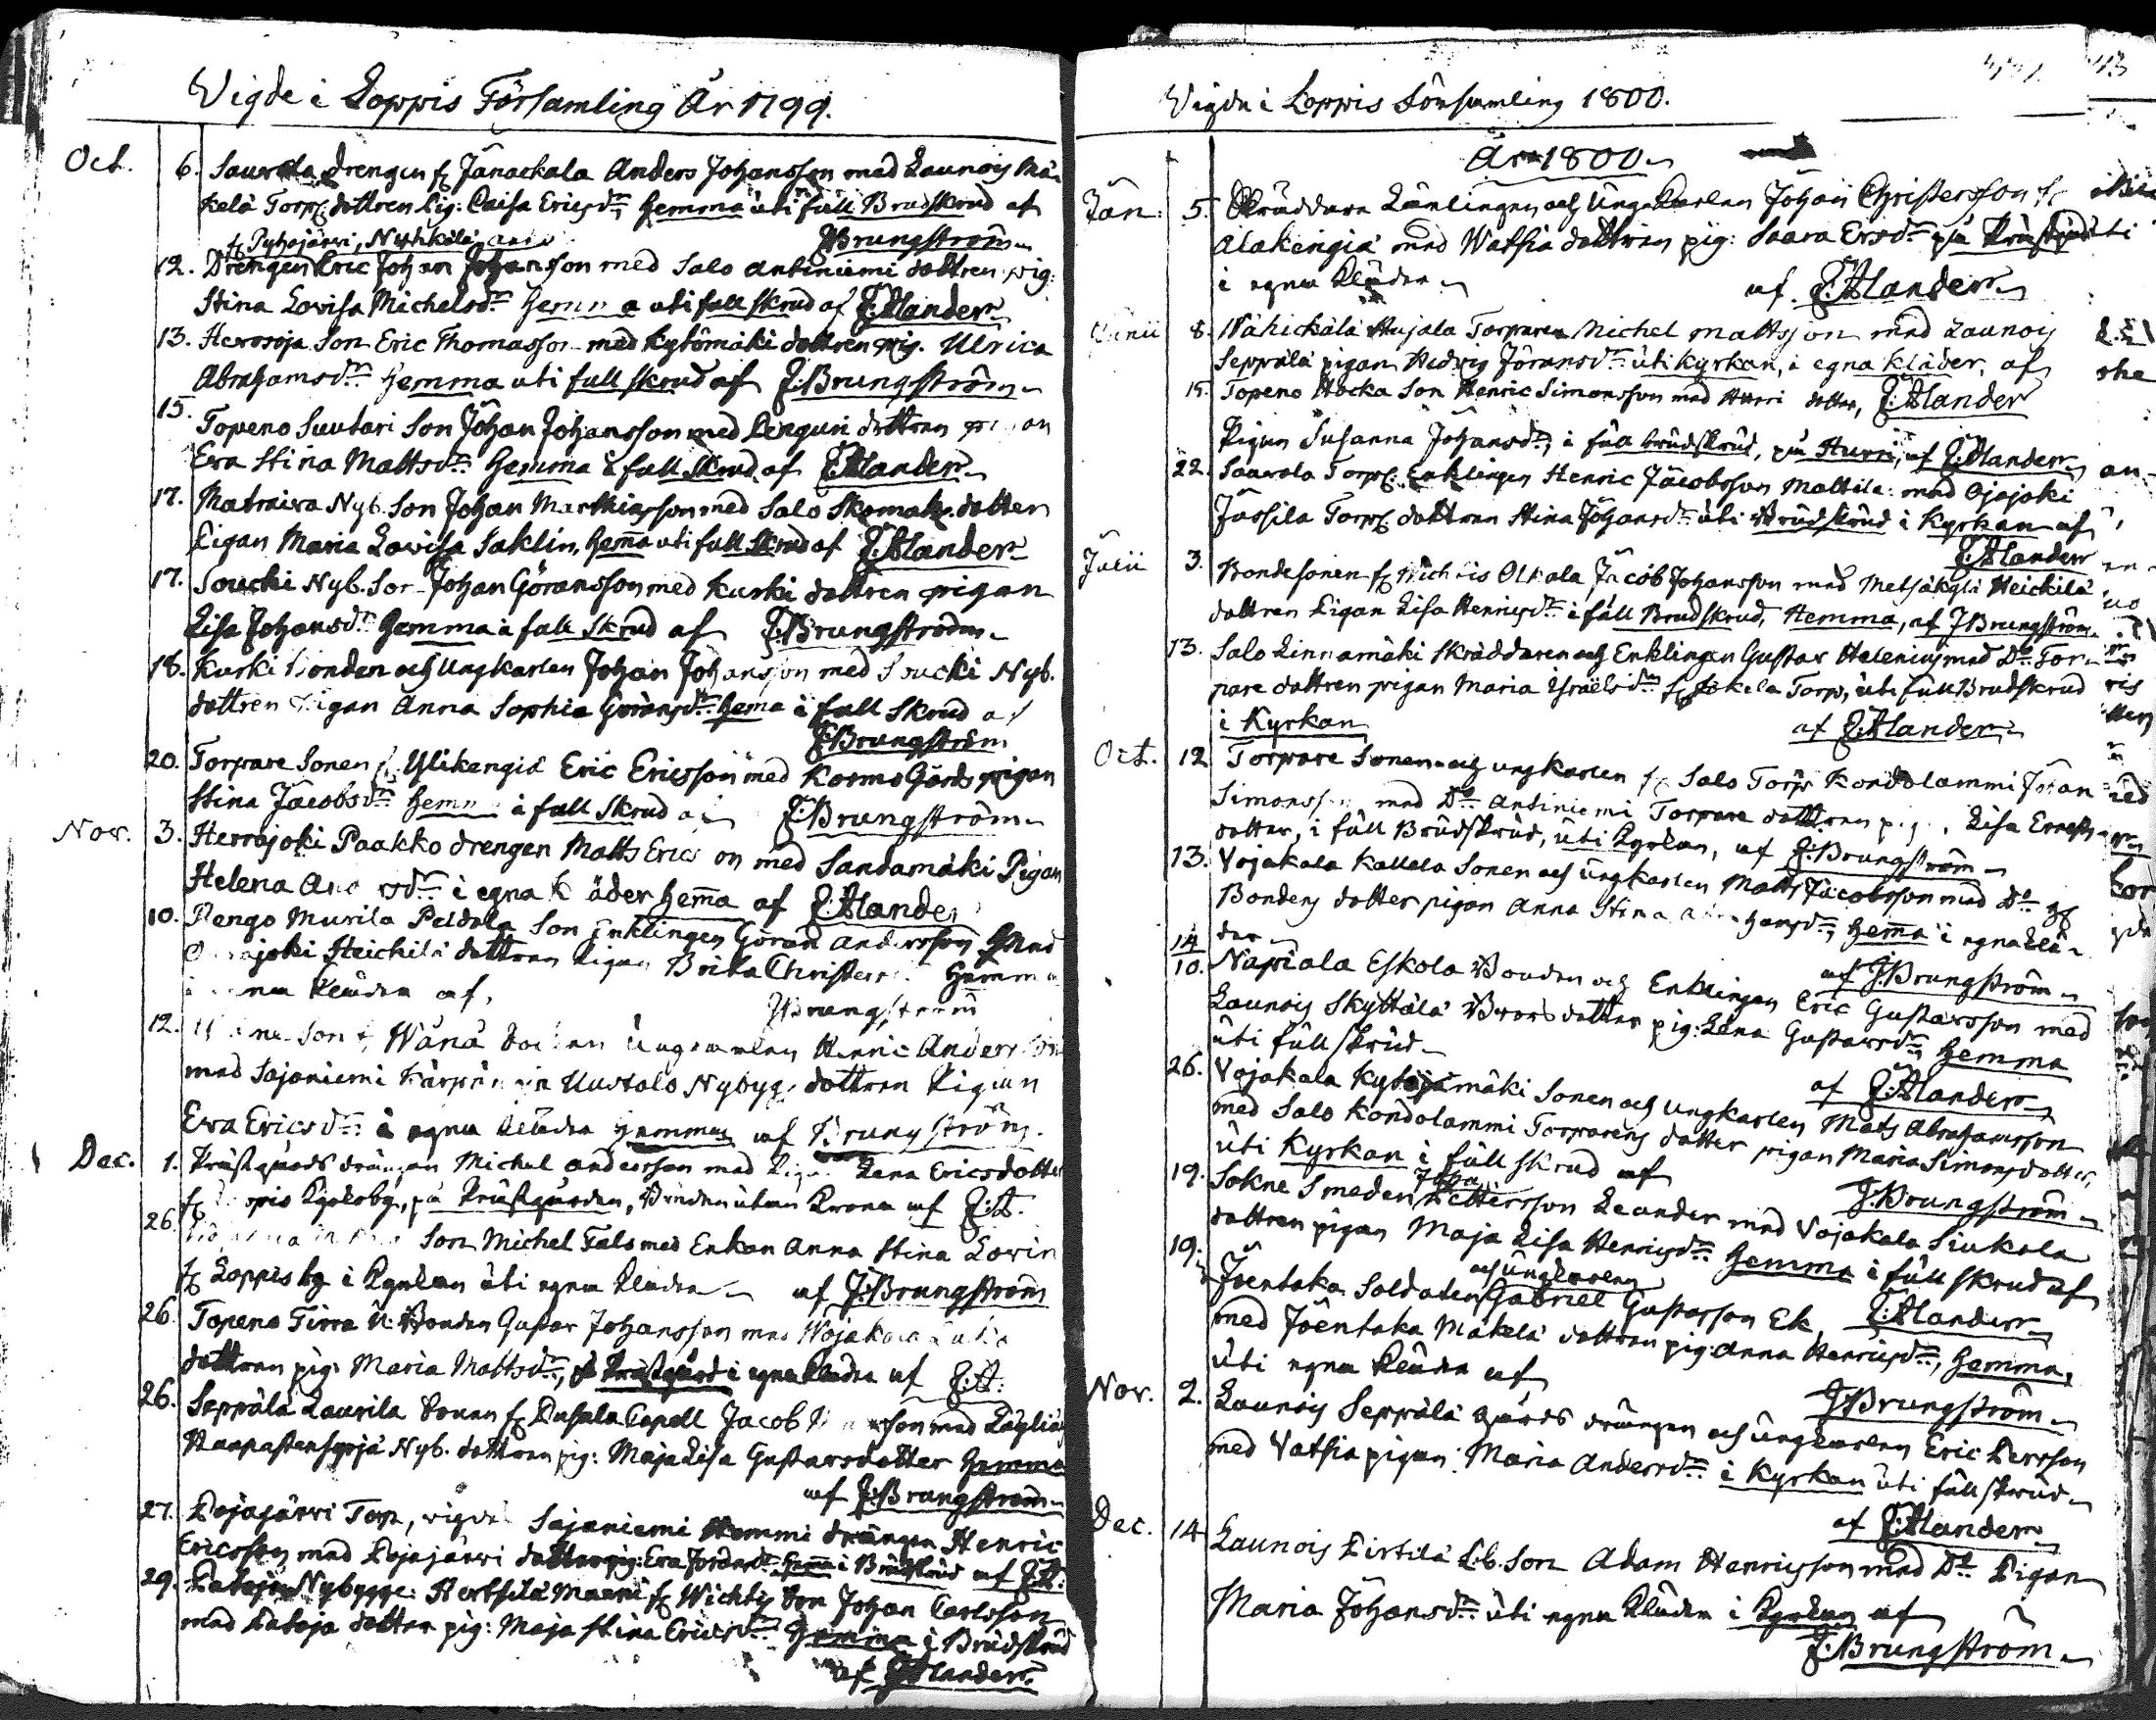 Vigde i Loppis Församling År 1799.
Oct. 6. Saurola drengen fr Janackala Anders Johansson med Launois Mä-
kelä Torp. dottren Pig: Caisa Ericsdr Hemma uti full Brudskrud af
fr Pyhäjärvi, Nyhkälä
J Brungström
12. Drengen Eric Johan Johansson med Salo Antiniemi dottren pig:
Stina Lovisa Michelsdr Hemma uti full skrud af J: Alander
13. Herrsoja Son Eric Thomasson med Kytömäki dottren pig. Ulrica
Abrahamsdr hemma uti full skrud af J: Brungström
15. Topeno Suutari Son Johan Johansson med Lenguri dottren
Eva Stina Mattsdr Hemma i full skrud af J: Alander
17. Matraiva Nyb. Son Johan Matthiasson med Salo Skomak. dotter
Pigan Maria Lovisa Saklin, Hema uti full skrud af J: Alander
17. Soucki Nyb. Son Johan Göransson med Kurki dottren pigan
Lisa Johansdr Hemma i full skrud af J: Brungström
18. Kurki bonden och Ungkarlen Johan Johansson med Soucki Nyb.
dottren Pigan Anna Sophia Göransdr Hema i full skrud af
J: Brungström
20. Torpare Sonen fr Ylikengiä Eric Ericsson med Kormo Gårds pigan
Stina Jacobsdr Hemma i full skrud af J: Brungström
Nov. 3. Herrajoki Paakko drengen Matts Ericsson med Sandamäki Pigan
Helena Andersdr i egna kläder Hema af J: Alander
10. Rengo Murila Peldola Son Enklingen Göran Andersson med
Heickilä dottren Pigan Brita Christers Hemma
i egna kläder af J Brungström
12. Son fr Wånå Ungkarlen Henric Anders
med Sajaniemi Uustalo Nybyg. dottren Pigan
Eva Ericsdr i egna kläder hemma af J Brungström.
Dec. 1. Prästgårds drängen Michel Andersson med Pigan Lena Ericsdotter
fr Loppis Kyrkoby, på Prästgården, af J: A.
26. Son Michel Fals med Enkan Anna Stina Lovin
fr Loppis by i Kyrkan uti egna kläder af J: Brungström
26. Topeno Tirra U: Bonden Gustav Johansson med Wojakala
dottren pig. Maria Mattsdr, på Prästgård i egna kläder af J: A:
26. Seppälä Laurila Sonen fr Pusula Capell Jacob med Läyliäis
Haapastensyrjä Nyb. dottren pig: Maja Lisa Gustavsdotter Hemma
af J: Brungström
27. Pojajärvi Torp, Sajaniemi Hemmi drängen Henric
Ericsson med Pojajärvi dottren pig: Eva Jordansdr Hema i Brudskrud af J: A:
29. Nybygge: Hertsilä Maari fr Wichtis Son Johan Carlsson
med Lataja dotter pig: Maja Stina Ericsdr Hemma i Brudskrud
af J Alander.
Vigde i Loppis Församling 1800.
År 1800
Jan: 5. Skräddare Länlingen och Ungakarlen Johan Christersson fr
Alakengiä med Watsia dottren pig: Saara Ersdr på Prästgård
i egna kläder af J: Alander
Junii 8. Vähickälä Hujala Torparen Michel Mattsson med Launois
Seppälä pigan Hedvig Jöransdr uti Kyrkan, i egna kläder, af
J: Alander
15. Topeno Hocka Son Henric Simonsson med Hurri dotter,
Pigan Susanna Johansdr, i full brudskrud, på Hurri, af J: Alander
22. Saurola Torp. Enklingen Henric Jacobsson Mattila med Ojajoki
Jussila Torp. dottren Stina Johansdr uti Brudskrud i Kyrkan af
J: Alander
Julii 3. Bondesonen fr Wichtis Olkala Jacob Johansson med Metsäkylä Heickilä
dottren Pigan Lisa Henricsdr i full Brudskrud, Hemma, af J Brungström
13. Salo Linnamäki Skräddaren och Enklingen Gustav Helenius med Do Tor-
pare dottren pigan Maria Israelsdr fr Jokela Torp, uti full Brudskrud
i Kyrkan af J: Alander
Oct. 12 Torpare Sonen och ungkarlen fr Salo Torp Kondolammi Johan
Simonsson med Do Antiniemi Torpare dottren pig. Lisa Ernsts
dotter, i full Brudskrud, uti Kyrkan, af J: Brungström
13. Vojakala Kallela Sonen och ungkarlen Matts Jacobsson med Do
Bondens dotter pigan Anna Stina Abrahamsdr, Hema i egna klä-
der af J: Brungström
14/10. Napiala Eskola Bonden och Enklingen Eric Gustavsson med
Launois Skyttälä Brors dotter pig: Lena Gustavsdr Hemma
uti full skrud af J: Alander
26. Vojakala Kytömäki Sonen och ungkarlen Mats Abrahamsson
med Salo Kondolammi Torparens dotter pigan Maria Simonsdotter,
uti Kyrkan i full skrud af J: Brungström
19. Sokne Smeden Johan Pettersson Leander med Vojakala Siukola
dottren pigan Maja Lisa Henricsdr Hemma i full skrud af
J: Alander
19. Joentaka Soldaten och ungkarlen Gabriel Gustavsson Ek
med Joentaka Mäkelä dottren pig: Anna Henricsdr, Hemma,
uti egna kläder af J Brungström
Nov. 2. Launois Seppälä gårds drängen och ungkarlen Eric Persson
med Vatsia pigan Maria Andersdr i Kyrkan uti full skrud
af J: Alander
Dec. 14 Launois Pirtilä L.b. Son Adam Henricsson med Do Pigan
Maria Johansdr uti egna kläder i Kyrkan af
J: Brungström